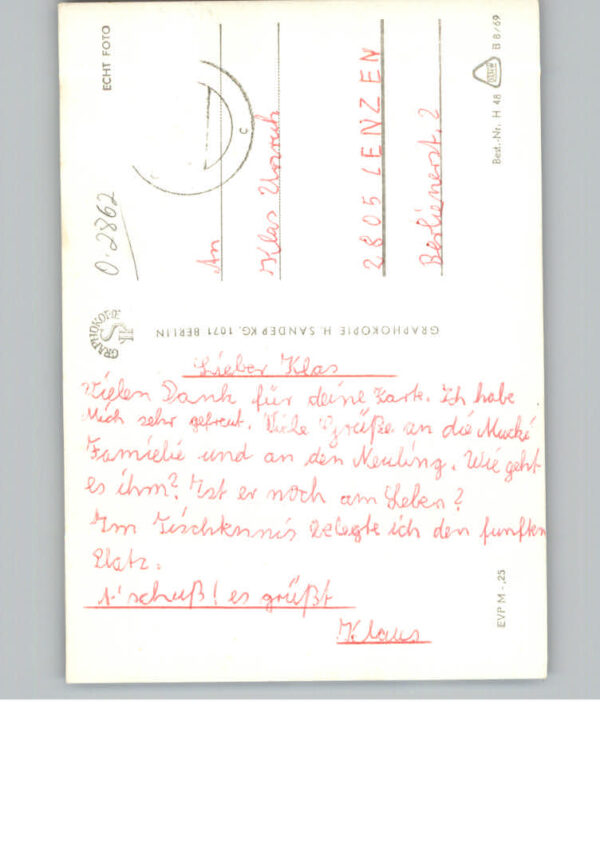 Lieber Klas
Vielen Dank für deine Karte. Ich habe
Mich sehr gefreut. Viele Grüße an die Mucki
Familie und an den Neuling. Wie geht
es ihm? Ist er noch am Leben?
Im Tischtennis belegte ich den funften
Platz.
schuß! es grüßt
Klaus
An
Klas
2805 LENZEN
Berlienerst. 2
ECHT FOTO
0.2862
C
GRAPHOKOPIE
GRAPHOKOPIE H. SANDER KG. 1071 BERLIN
Best.-Nr. H 48 B 8/69
EVP M -,25